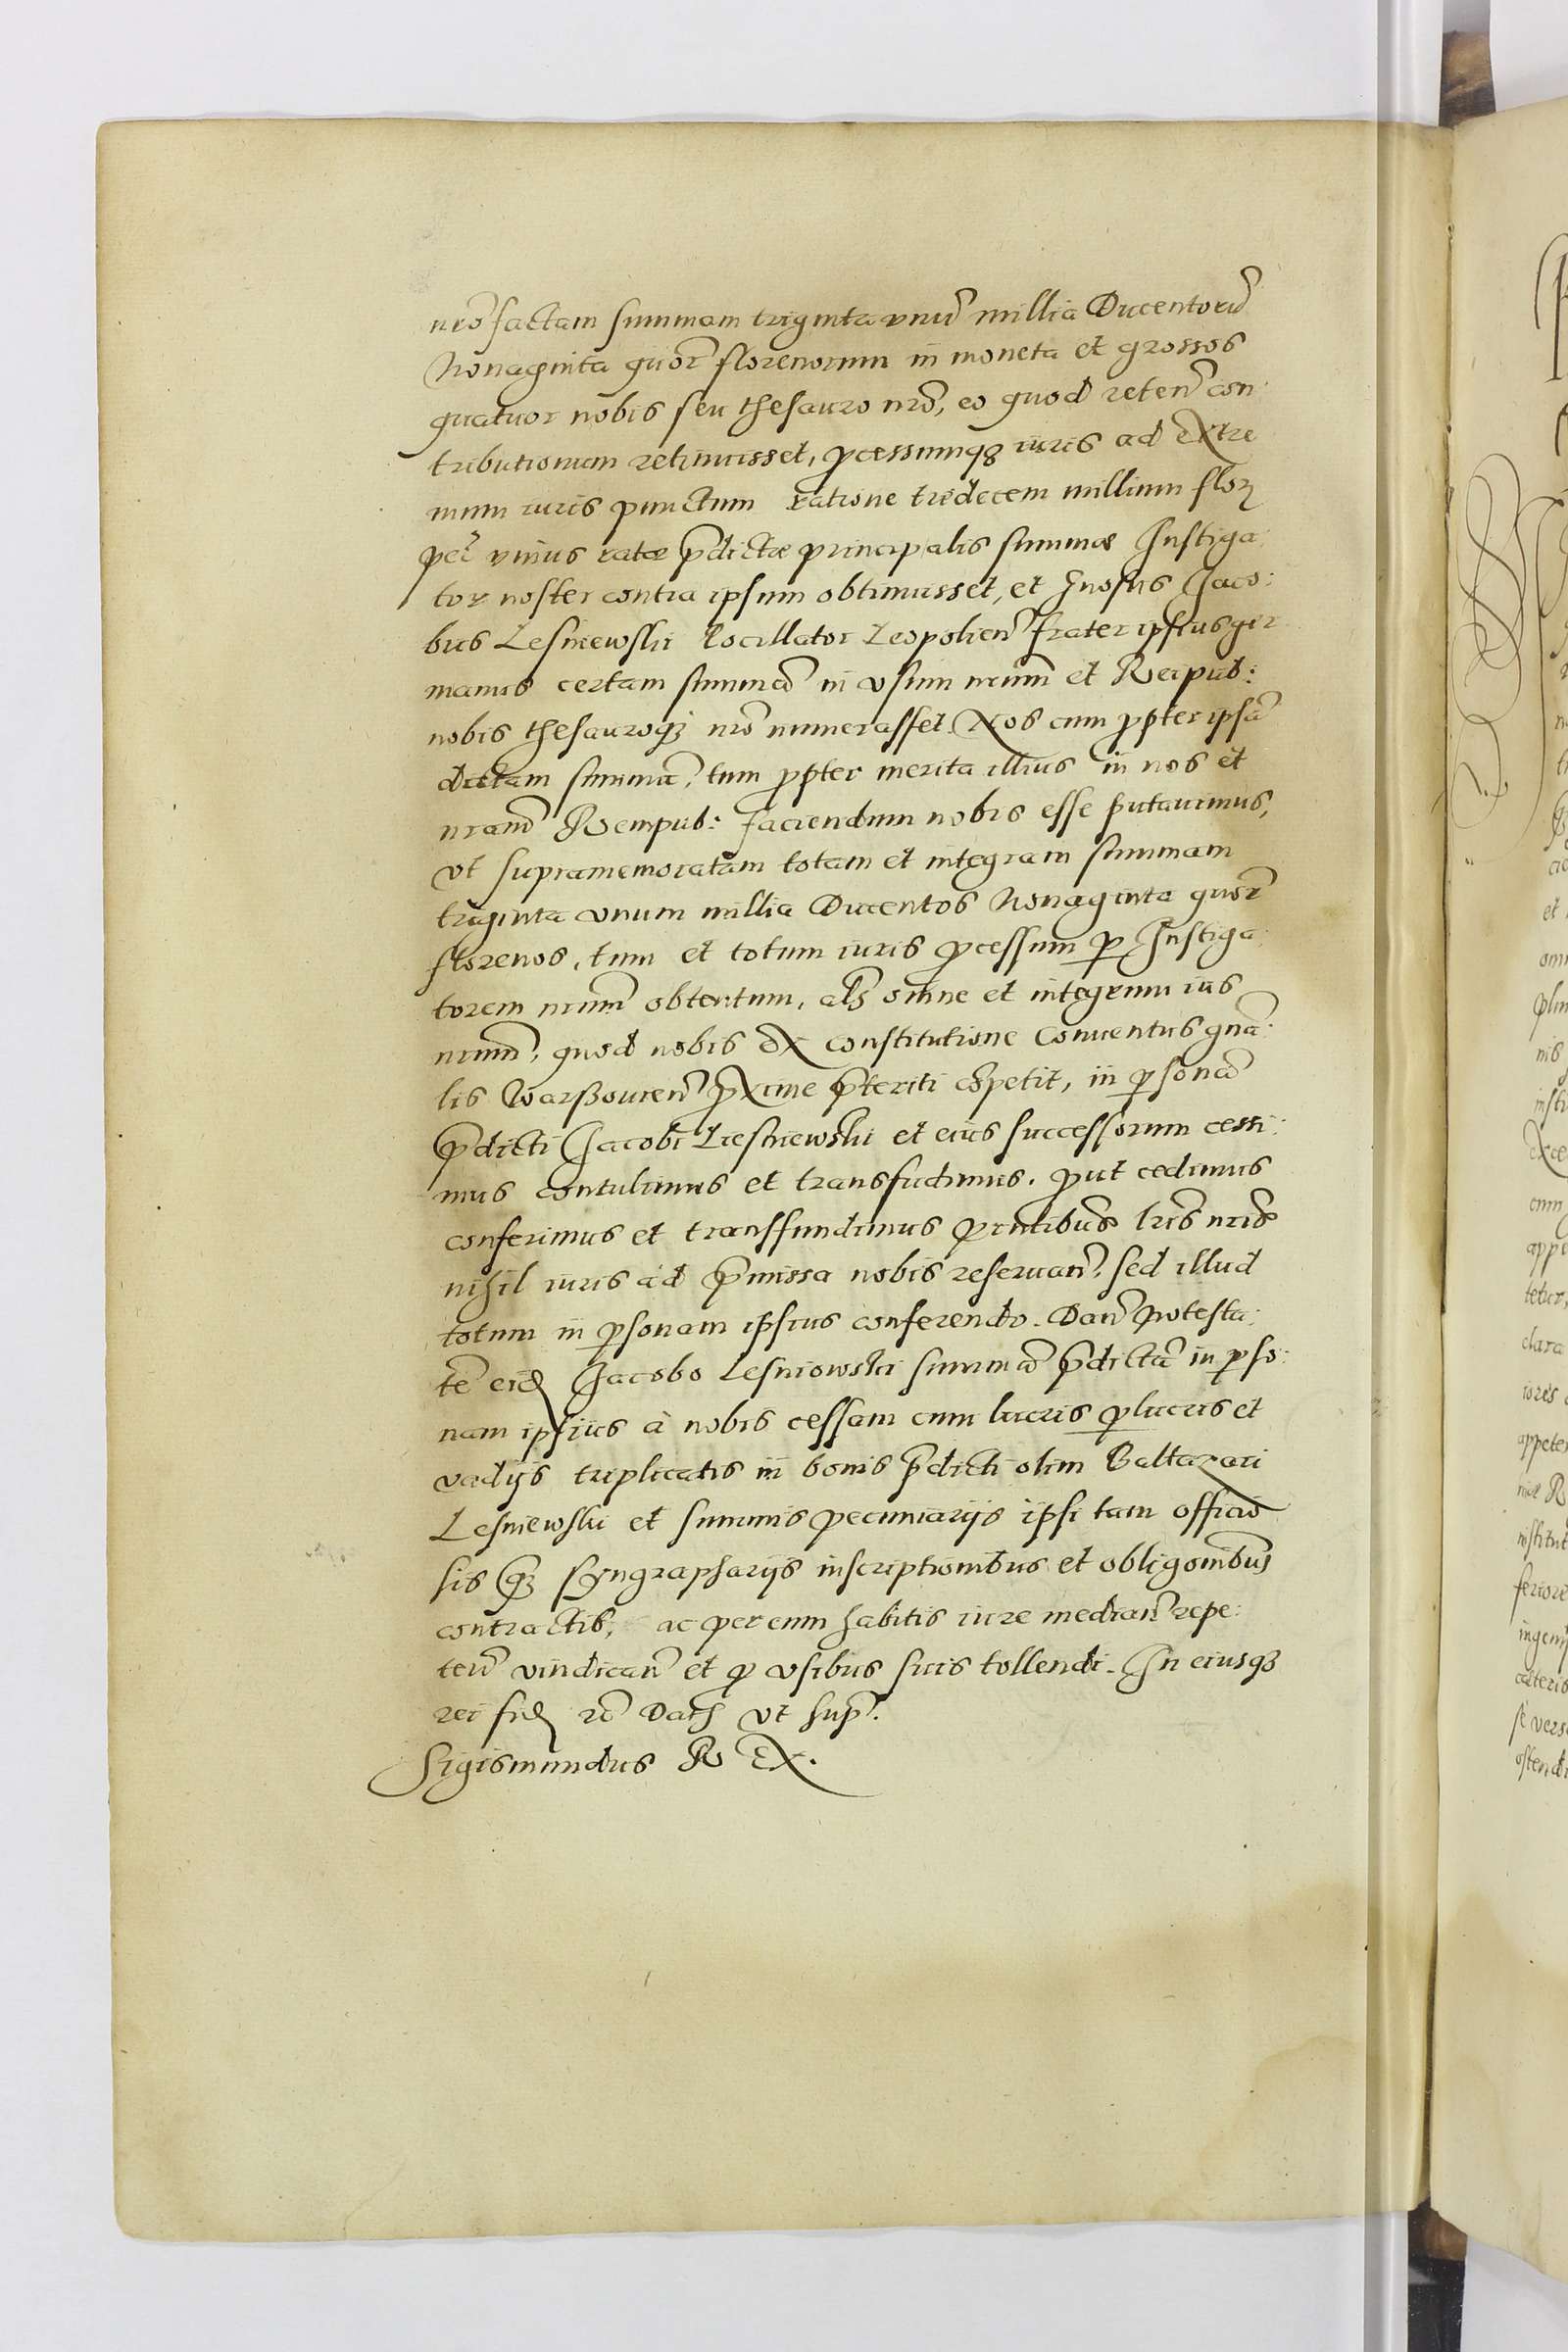 nrõ factam summam triginta vnũ millia Ducentorũ
Nonaginta quor̃ florenorum in moneta et grossos
quatuor nobis seu thesauro nrõ, eo quod reteñ con:
tributionum retinuisset, ꝓcessumqꝫ iuris ad extre
mum iuris punctum ratione tredecem millium flor
per vnius ratæ p̃dictæ principalis summæ Instiga:
tor noster contra ipsum obtinuisset, et Gnosus Jaco:
bus Lesniewski Pocillator Leopolieñ frater ipsius ger
manus certam summã in vsum nrum̃ et Reipub:
nobis thesauroqꝫ nrõ numerasset. Nos cum ꝓpter ipsã
dictam summã, tum ꝓpter merita illius in nos et
nram̃ Rempub: faciendum nobis esse putauimus,
vt supramemoratam totam et integram summam
triginta vnum millia Ducentos Nonaginta quor̃
florenos, tum et totum iuris ꝓcessum ꝑ Instiga:
torem nrum̃ obtentum, als̃ omne et integrum ius
nrum̃, quod nobis ex constitutione Conuentus gnã:
lis Warßouieñ ꝓxime p̃teriti cõpetit, in ꝑsonã
p̃dicti Jacobi Liesniewski et eius successorum cessi:
mus contulimus et transfudimus. ꝓut cedimus
conferimus et transfundimus p̃ntibus lris̃ nris̃
nihil iuris ad p̃missa nobis reseruañ, sed illud
totum in ꝑsonam ipsius conferendo. Dañ potesta:
tẽ eid Jacobo Lesniowski summã p̃dictã in ꝑso:
nam ipsius à nobis cessam cum lucris ꝑlucris et
vadijs triplicatis in bonis p̃dicti olim Baltazari
Lesniewski et summis pecuniarijs ipsi tam officio
sis qꝫ syngrapharijs inscriptionibus et obligonĩbus
contractib, ac per eum habitis iure mediañ repe:
teñ vindicañ et ꝓ vsibus suis tollendi. In eiusqꝫ
rei fid rc̃ Dat vt sup̃.
Sigismundus R EX.